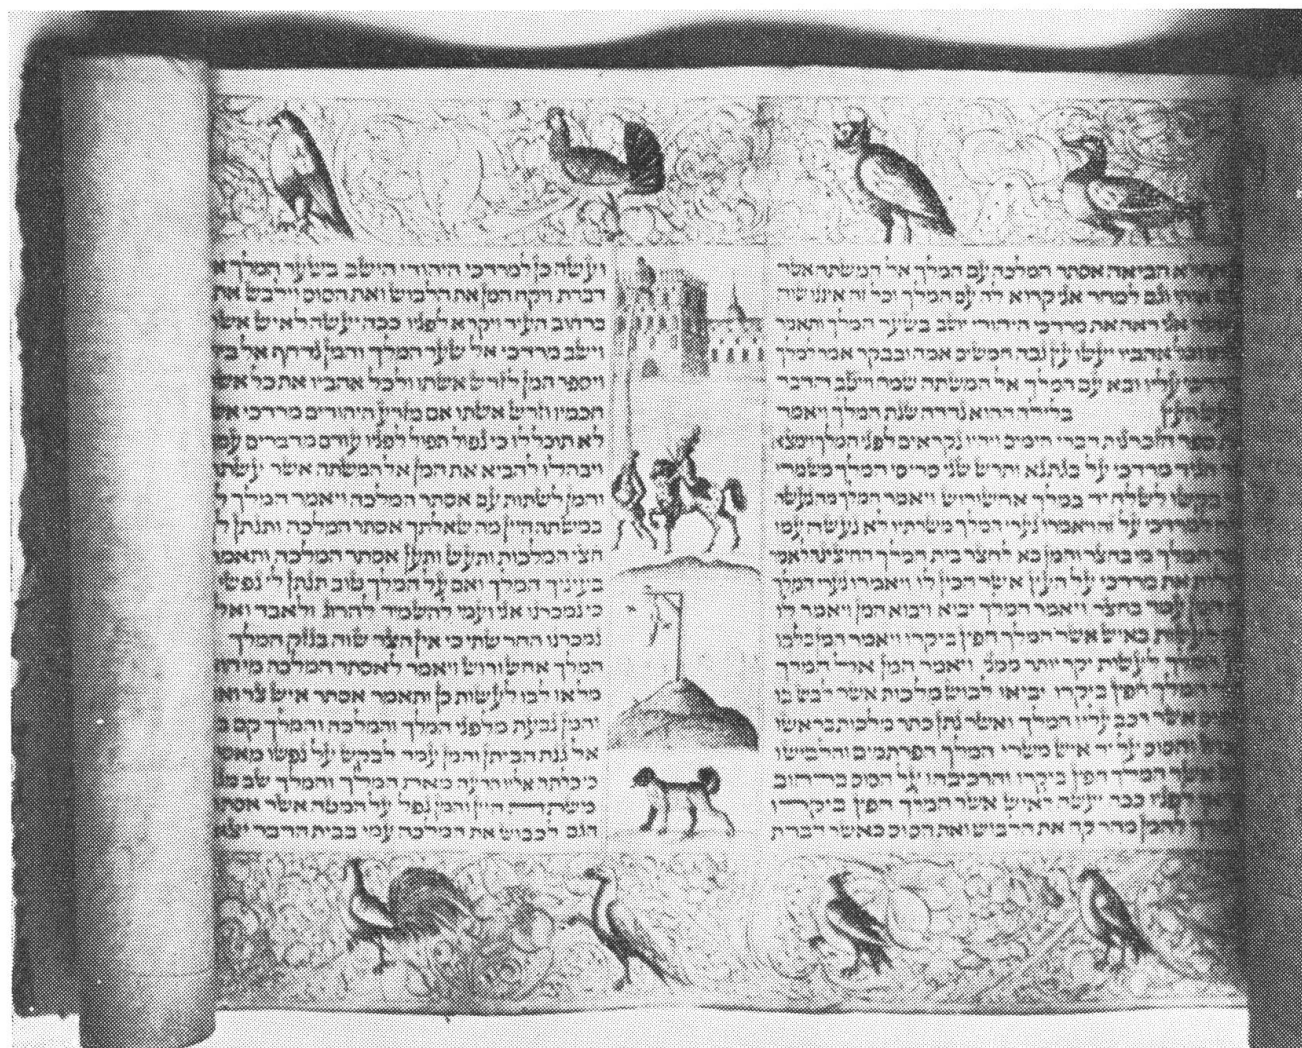 לא הביאה אסתר המלכה עם המלך אל המשתה אשר
אותי וגם למחר אני קרוא לה עם המלך וכל זה איננו שוה
אני ראה את מרדכי היהודי יושב בשער המלך ותאמר
וכל אהביו יעשו עץ גבה חמשים אמה ובבקר אמר למלך
מרדכי עליו ובא עם המלך אל המשתה שמח וייטב הדבר
העץ בלילה ההוא נדדה שנת המלך ויאמר
ספר הזכרנות דברי הימים ויהיו נקראים לפני המלך וימצא
הגיד מרדכי על בגתנא ותרש שני סריסי המלך משמרי
בקשו לשלח יד במלך אחשורוש ויאמר המלך מה נעשה
למרדכי על זה ויאמרו נערי המלך משרתיו לא נעשה עמו
המלך מי בחצר והמן בא לחצר בית המלך החיצונה לאמר
לתלות את מרדכי על העץ אשר הכין לו ויאמרו נערי המלך
המן עמד בחצר ויאמר המלך יבוא ויבוא המן ויאמר לו
לעשות באיש אשר המלך חפץ ביקרו ויאמר המן בלבו
המלך לעשות יקר יותר ממני ויאמר המן אל המלך
המלך חפץ ביקרו יביאו לבוש מלכות אשר לבש בו
אשר רכב עליו המלך ואשר נתן כתר מלכות בראשו
והסוס על יד איש משרי המלך הפרתמים והלבישו
אשר המלך חפץ ביקרו והרכיבהו על הסוס ברחוב
לפניו ככה יעשה לאיש אשר המלך חפץ ביקרו
להמן מהר קח את הלבוש ואת הסוס כאשר דברת
ועשה כן למרדכי היהודי היושב בשער המלך א
דברת ויקח המן את הלבוש ואת הסוס וילבש את
ברחוב העיר ויקרא לפניו ככה יעשה לאיש אשר
וישב מרדכי אל שער המלך והמן נדחף אל בית
ויספר המן לזרש אשתו ולכל אהביו את כל אשר
חכמיו וזרש אשתו אם מזרע היהודים מרדכי אש
לא תוכל לו כי נפול תפול לפניו עודם מדברים עמו
ויבהלו להביא את המן אל המשתה אשר עשתה
והמן לשתות עם אסתר המלכה ויאמר המלך ל
במשתה היין מה שאלתך אסתר המלכה ותנתן ל
חצי המלכות ותעש ותען אסתר המלכה ותאמר
בעיניך המלך ואם על המלך טוב תנתן לי נפשי
כי נמכרנו אני ועמי להשמיד להרוג ולאבד ואל
נמכרנו החרשתי כי אין הצר שוה בנזק המלך
המלך אחשורוש ויאמר לאסתר המלכה מי הוא
מלאו לבו לעשות כן ותאמר אסתר איש צר וא
והמן נבעת מלפני המלך והמלכה והמלך קם ב
אל גנת הביתן והמן עמד לבקש על נפשו מאס
כי כלתה אליו הרעה מאת המלך והמלך שב מג
משתה היין והמן נפל על המטה אשר אסת
הגם לכבוש את המלכה עמי בבית הדבר יצא